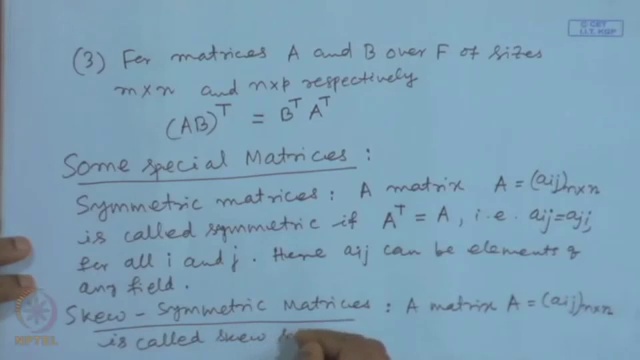 © CET
I.I.T. KGP
(3) For matrices A and B over F of sizes
m×n and n×p respectively
(AB)ᵀ = Bᵀ Aᵀ
Some special Matrices :
Symmetric matrices : A matrix A = (aij)n×n
is called symmetric if Aᵀ = A, i.e. aij = aji
for all i and j. Here aij can be elements of
any field.
Skew - Symmetric Matrices : A matrix A = (aij)n×n
is called skew
NPTEL